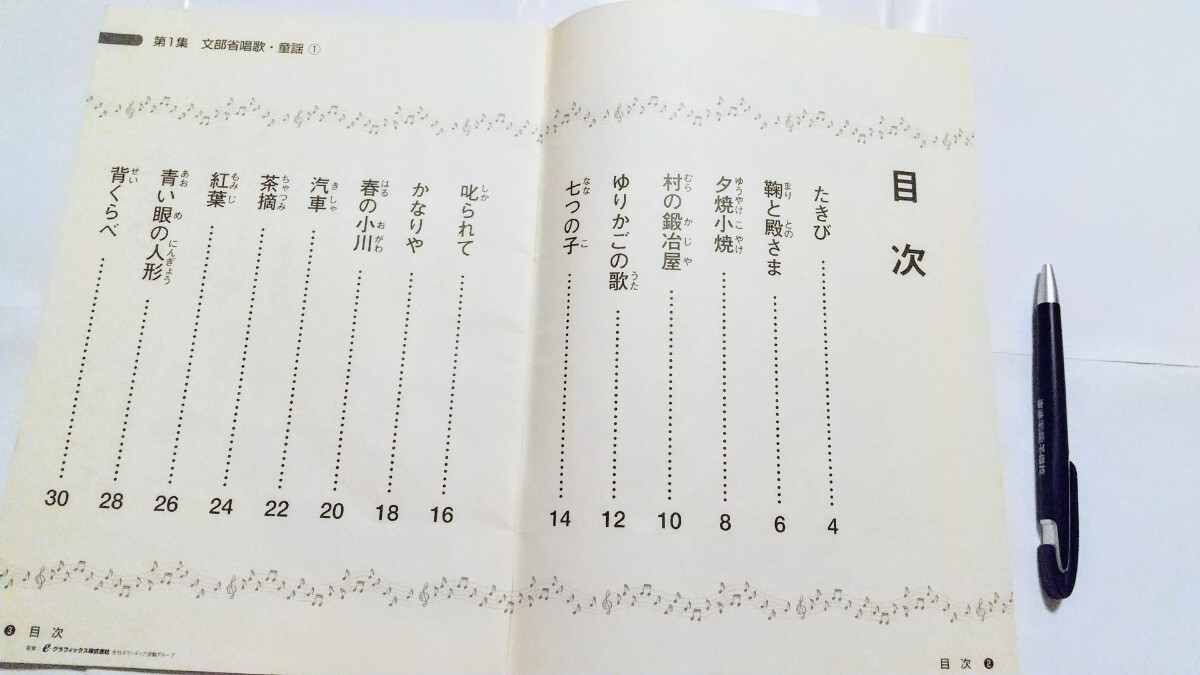 目次
たきび 4
鞠と殿さま 6
夕焼小焼 8
村の鍛冶屋 10
ゆりかごの歌 12
七つの子 14
目次 ❷
第1集 文部省唱歌・童謡 ①
叱られて 16
かなりや 18
春の小川 20
汽車 22
茶摘 24
紅葉 26
青い眼の人形 28
背くらべ 30
❸ 目次
グラフィックス株式会社